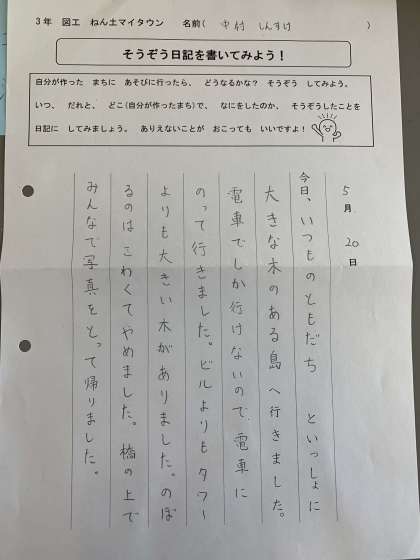 3年　図工　ねん土マイタウン　名前(　中村　しんすけ　)
そうぞう日記を書いてみよう！
自分が作った　まちに　あそびに行ったら、　どうなるかな？　そうぞう　してみよう。
いつ、　だれと、　どこ(自分が作ったまち)で、　なにをしたのか、　そうぞうしたことを
日記に　してみましょう。　ありえないことが　おこっても　いいですよ！
5月　20日
今日、いつものともだち　といっしょに
大きな木のある島へ行きました。
電車でしか行けないので、電車に
のって行きました。ビルよりもタワー
よりも大きい木がありました。のぼ
るのはこわくてやめました。橋の上で
みんなで写真をとって帰りました。